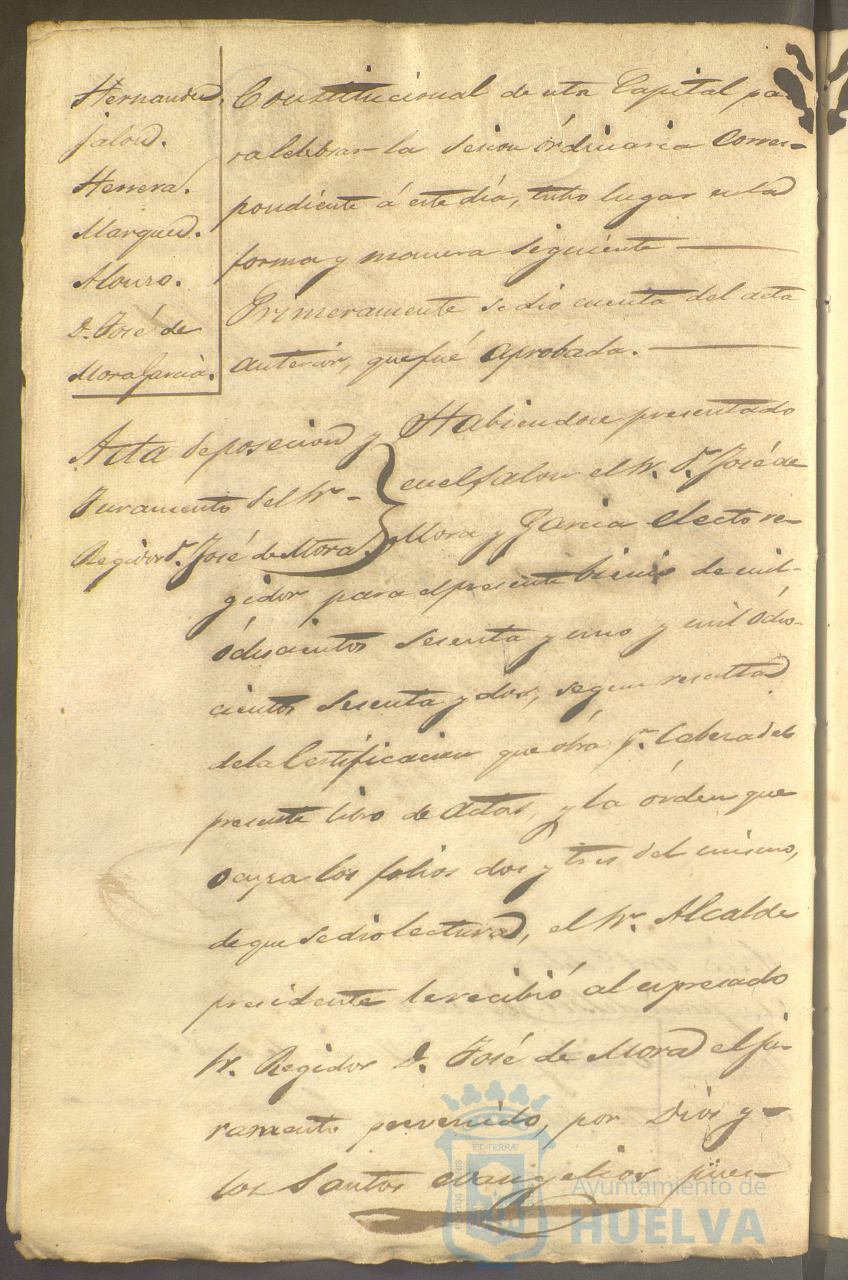 Hernandez.
Jalon.
Herrera.
Marquez.
Alonso.
D. José de
Mora Garcia.
Constitucional de esta Capital pa
ra celebrar la sesion órdinaria corres-
pondiente á este dia, tubo lugar en la
forma y manera siguiente
Primeramente se dio cuenta del acta
anterior, que fué aprobada.
Acta de posecion y
Juramento del Sr.
Regidor D. José de Mora.
Habiendose presentado
en el salon el Sr. D. José de
Mora y Garcia electo re-
gidor para el presente bienio de mil
óchocientos sesenta y uno y mil ócho-
cientos sesenta y dos, segun resulta
de la Certificacion que obra pr. Cabeza del
presente libro de actas, y la órden que
ocupa los folios dos y tres del mismo,
de que se dio lectura, el Sr. Alcalde
presidente le recibió al espresado
Sr. Regidor D. José de Mora el ju-
ramento prevenido, por Dios y
los Santos evangelios
Ayuntamiento de
HUELVA